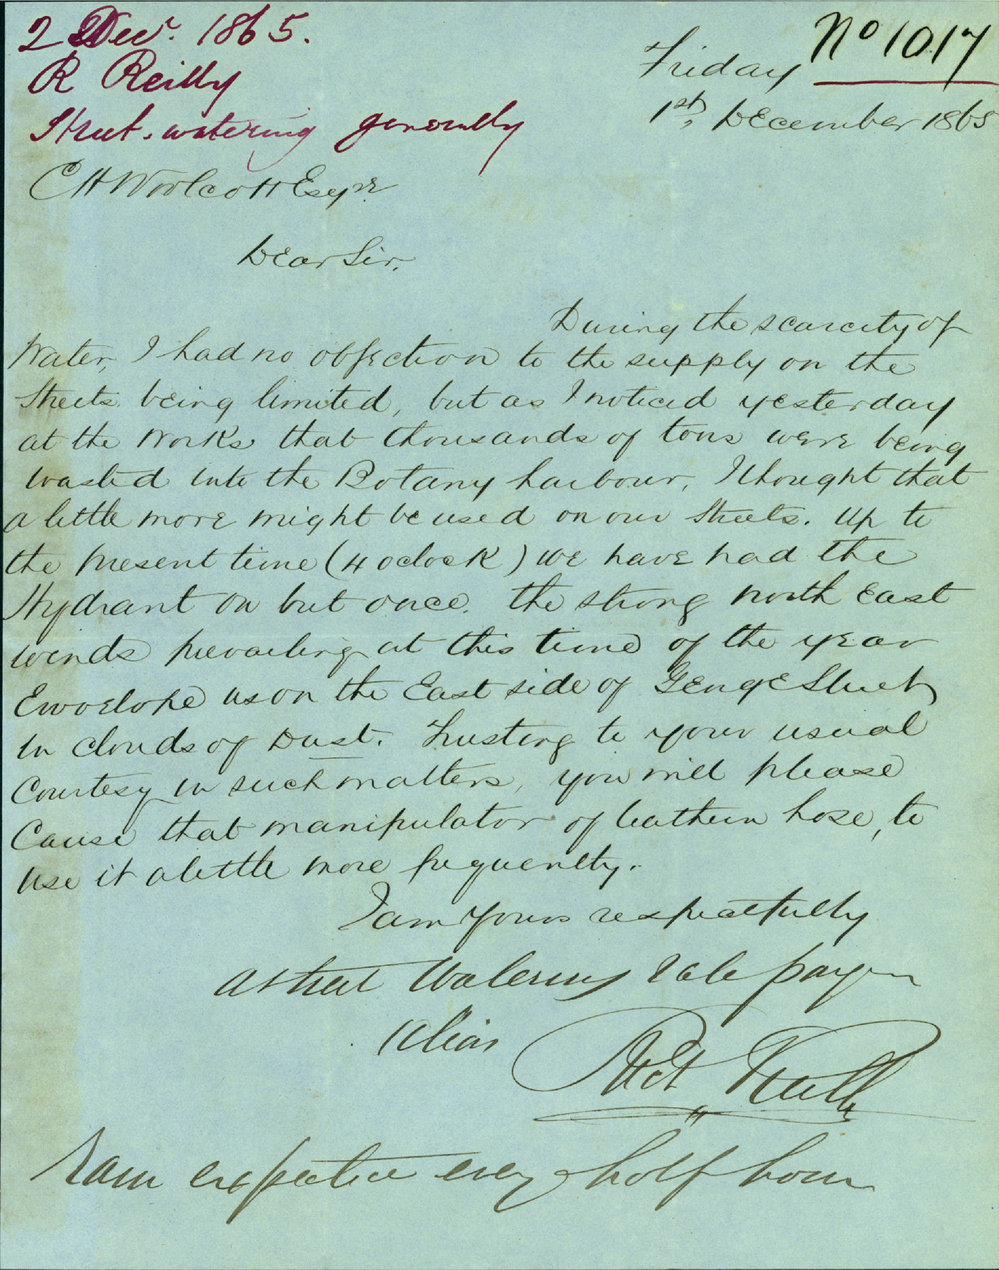 2 Decr. 1865.
R Reilly
Street-watering generally
No 1017
Friday
1st December 1865
C H Woolcott Esqre
Dear Sir,
During the scarcity of
Water, I had no objection to the supply on the
Streets being limited, but as I noticed yesterday
at the Works that thousands of tons were being
wasted into the Botany harbour, I thought that
a little more might be used on our Streets. Up to
the present time (4 oclock) we have had the
Hydrant on but once. the strong north East
winds prevailing at this time of the year
Envelope us on the East side of George Street
in clouds of Dust. Trusting to your usual
Courtesy in such matters, you will please
Cause that manipulator of leathern hose, to
use it a little more frequently.
I am Yours respectfully
A Street Watering Rate payer
Alias
Rd Reilly
Rain expected every half hour